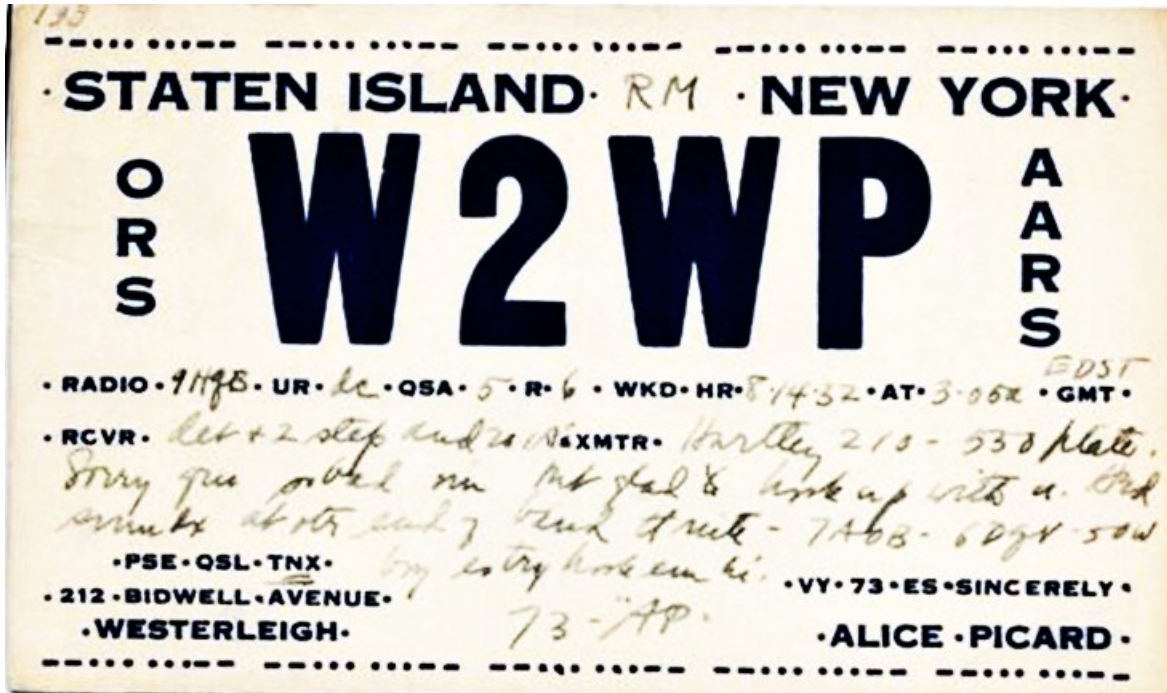 133
·STATEN ISLAND· RM ·NEW YORK·
ORS
W2WP
AARS
EDST
·RADIO· 9HQB ·UR· dc ·QSA· 5 ·R· 6 ·WKD·HR· 8·14·32 ·AT· 3·05a ·GMT·
·RCVR· det + 2 step and ·XMTR· Hartley 210 - 550 plate.
Sorry qrn so bad nw but glad to hook up with u. Hrd
at otr end of band - 7AOB - 50W
·PSE·QSL·TNX· es try hook em hi.
·VY·73·ES·SINCERELY·
·212·BIDWELL·AVENUE·
73 - "AP"
·WESTERLEIGH·
·ALICE·PICARD·